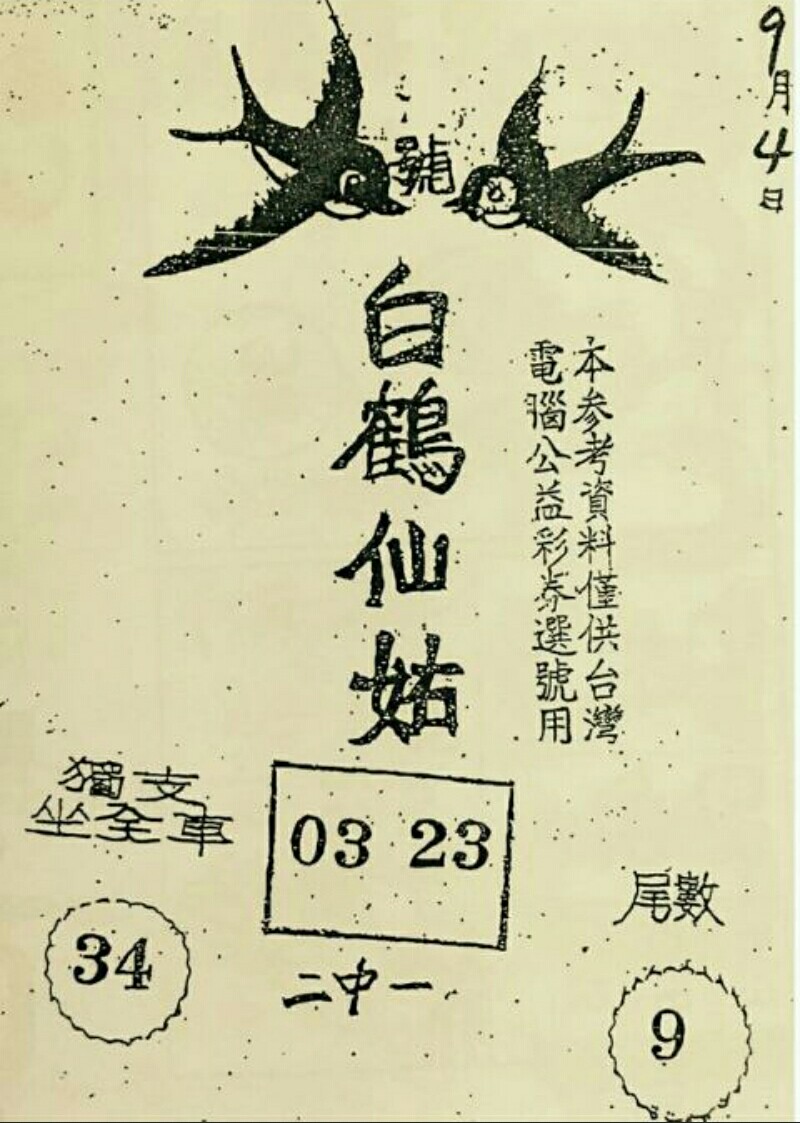 9月4日
號
白鶴仙姑
本參考資料僅供台灣
電腦公益彩券選號用
獨支
坐全車
34
03 23
二中一
尾數
9